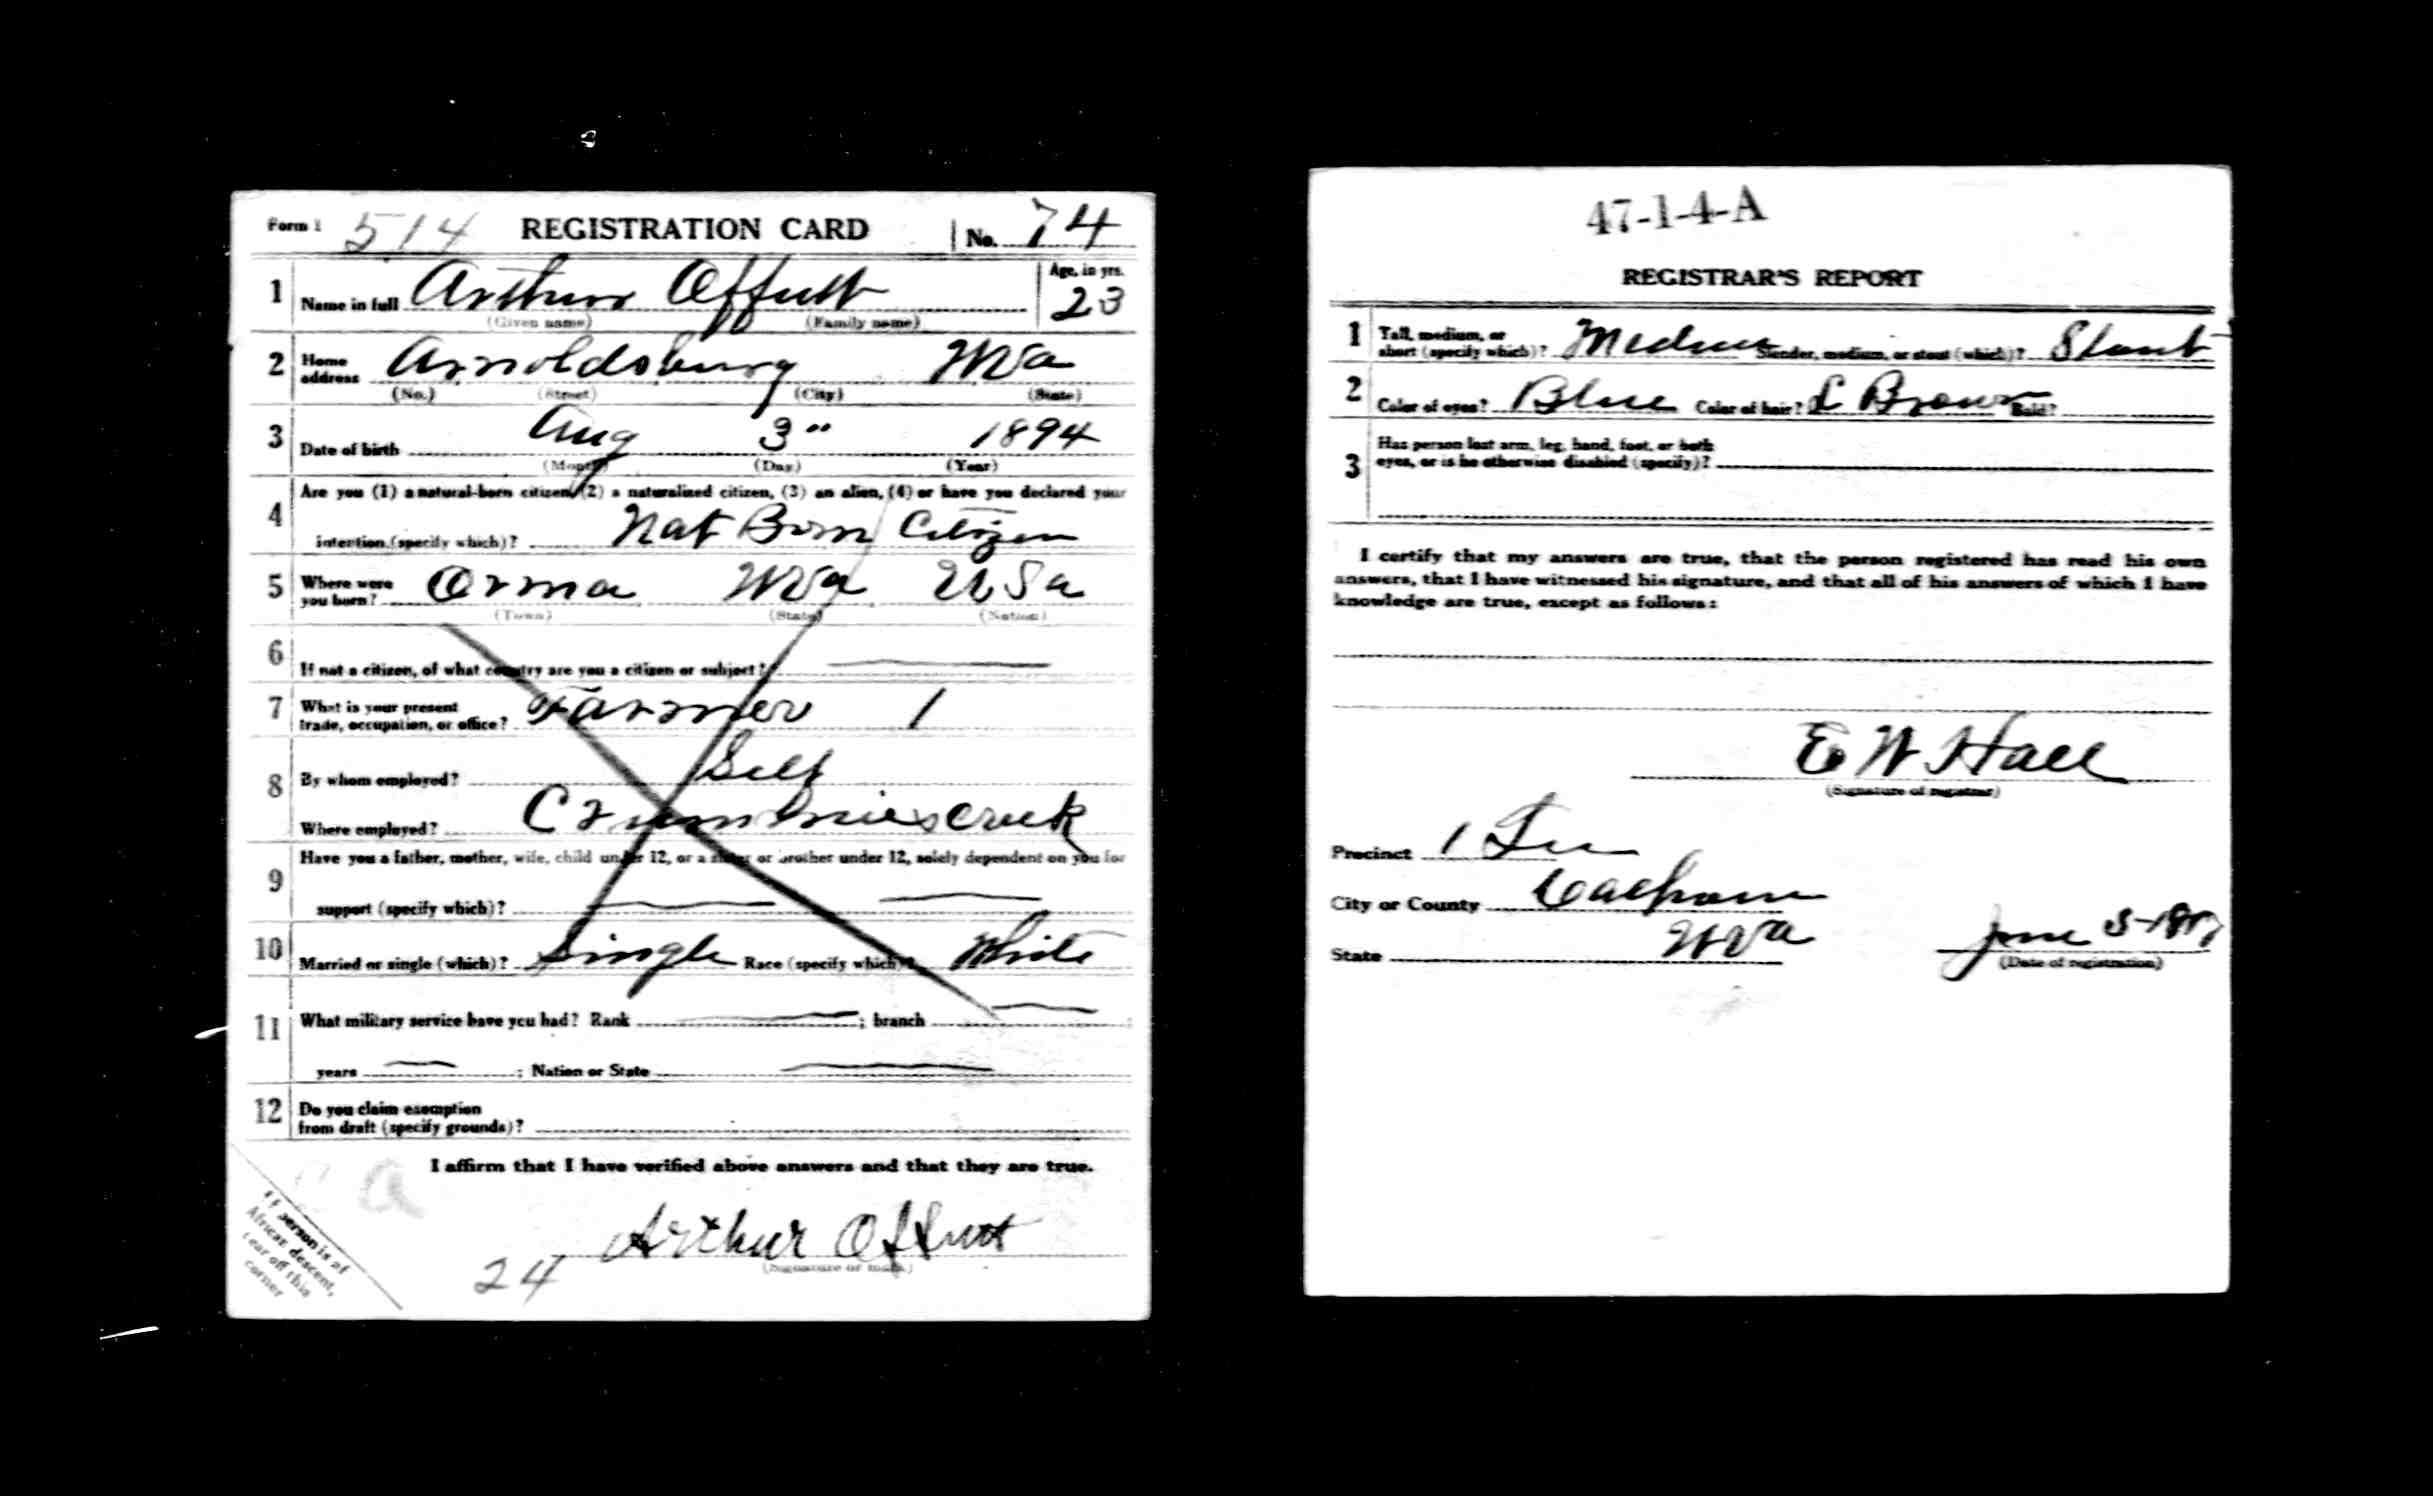 Form 1 514 REGISTRATION CARD No. 74
1 Name in full Arthur Offutt Age, in yrs. 23
(Given name) (Family name)
2 Home address Arnoldsburg WVa
(No.) (Street) (City) (State)
3 Date of birth Aug 3" 1894
(Month) (Day) (Year)
4 Are you (1) a natural-born citizen, (2) a naturalized citizen, (3) an alien, (4) or have you declared your
intention (specify which)? Nat Born Citizen
5 Where were you born? Orma WVa USa
(Town) (State) (Nation)
6 If not a citizen, of what country are you a citizen or subject?
7 What is your present trade, occupation, or office? Farmer 1
8 By whom employed? Self
Where employed? Crummies Creek
9 Have you a father, mother, wife, child under 12, or a sister or brother under 12, solely dependent on you for
support (specify which)?
10 Married or single (which)? Single Race (specify which)? White
11 What military service have you had? Rank ; branch
years ; Nation or State
12 Do you claim exemption
from draft (specify grounds)?
I affirm that I have verified above answers and that they are true.
Arthur Offutt
(Signature or mark)
24
If person is of
African descent,
tear off this
corner
47-1-4-A
REGISTRAR'S REPORT
1 Tall, medium, or
short (specify which)? Medium Slender, medium, or stout (which)? Stout
2 Color of eyes? Blue Color of hair? L Brown Bald?
3 Has person lost arm, leg, hand, foot, or both
eyes, or is he otherwise disabled (specify)?
I certify that my answers are true, that the person registered has read his own
answers, that I have witnessed his signature, and that all of his answers of which I have
knowledge are true, except as follows:
E W Hall
(Signature of registrar)
Precinct 1 Lee
City or County Calhoun
State WVa June 5-1917
(Date of registration)